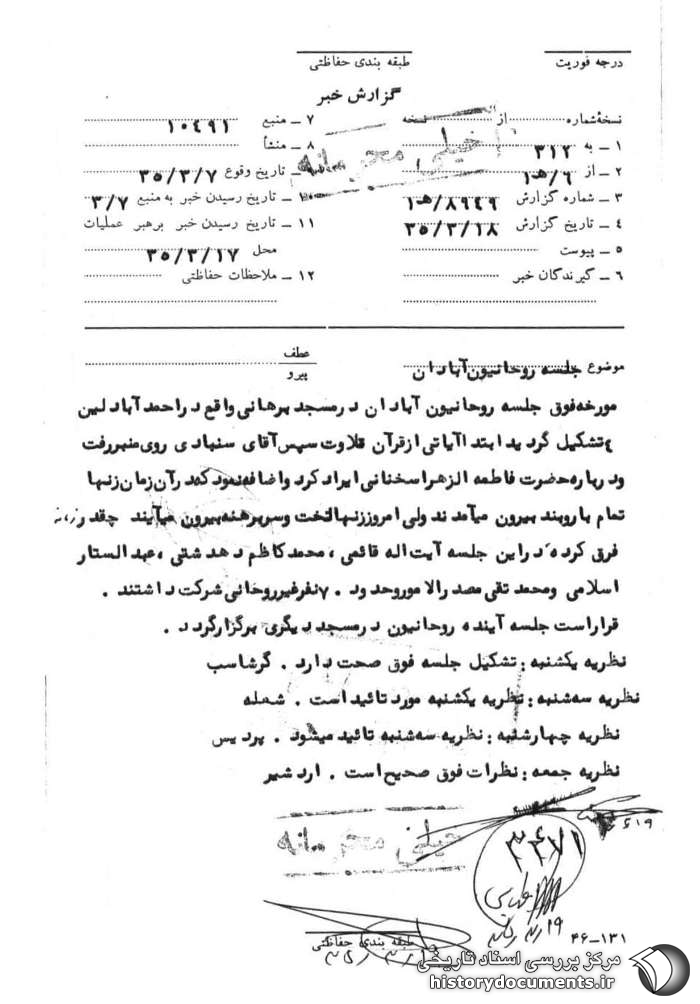 درجه فوریت
طبقه بندی حفاظتی
گزارش خبر
خیلی محرمانه
نسخهٔ شماره از نسخه
۱ ــ به ۳۱۲
۲ ــ از ۶/هـ۱
۳ ــ شماره گزارش ۸۹۴۹/هـ۱
۴ ــ تاریخ گزارش ۳۵/۳/۱۸
۵ ــ پیوست
۶ ــ گیرندگان خبر
۷ ــ منبع ۱۰۴۹۱
۸ ــ منشأ
۹ ــ تاریخ وقوع ۳۵/۳/۷
۱۰ ــ تاریخ رسیدن خبر به منبع ۳/۷
۱۱ ــ تاریخ رسیدن خبر برهبر عملیات
محل ۳۵/۳/۱۷
۱۲ ــ ملاحظات حفاظتی
موضوع جلسه روحانیون آبادان
عطف
پیرو
مورخه فوق جلسه روحانیون آبادان در مسجد بهبهانی واقع در احمدآباد لین
۴ تشکیل گردید ابتدا آیاتی از قرآن تلاوت سپس آقای سنبادی روی منبر رفت
و درباره حضرت فاطمه الزهرا سخنانی ایراد کرد و اضافه نمود که در آن زمان زنها
تمام با روبند بیرون میآمدند ولی امروز زنها لخت و سربرهنه بیرون میآیند چقدر
فرق کرده، در این جلسه آیت اله قائمی ، محمد کاظم دهدشتی ، عبدالستار
اسلامی و محمد تقی مصدرالامور و حدود ۷۰ نفر غیر روحانی شرکت داشتند .
قرار است جلسه آینده روحانیون در مسجد دیگری برگزار گردد .
نظریه یکشنبه : تشکیل جلسه فوق صحت دارد . گرشاسب
نظریه سه شنبه : نظریه یکشنبه مورد تائید است . شعله
نظریه چهارشنبه : نظریه سه شنبه تائید میشود . پردیس
نظریه جمعه : نظرات فوق صحیح است . اردشیر
خیلی محرمانه
طبقه بندی حفاظتی
۴۶-۱۳۱
مرکز بررسی اسناد تاریخی
historydocuments.ir